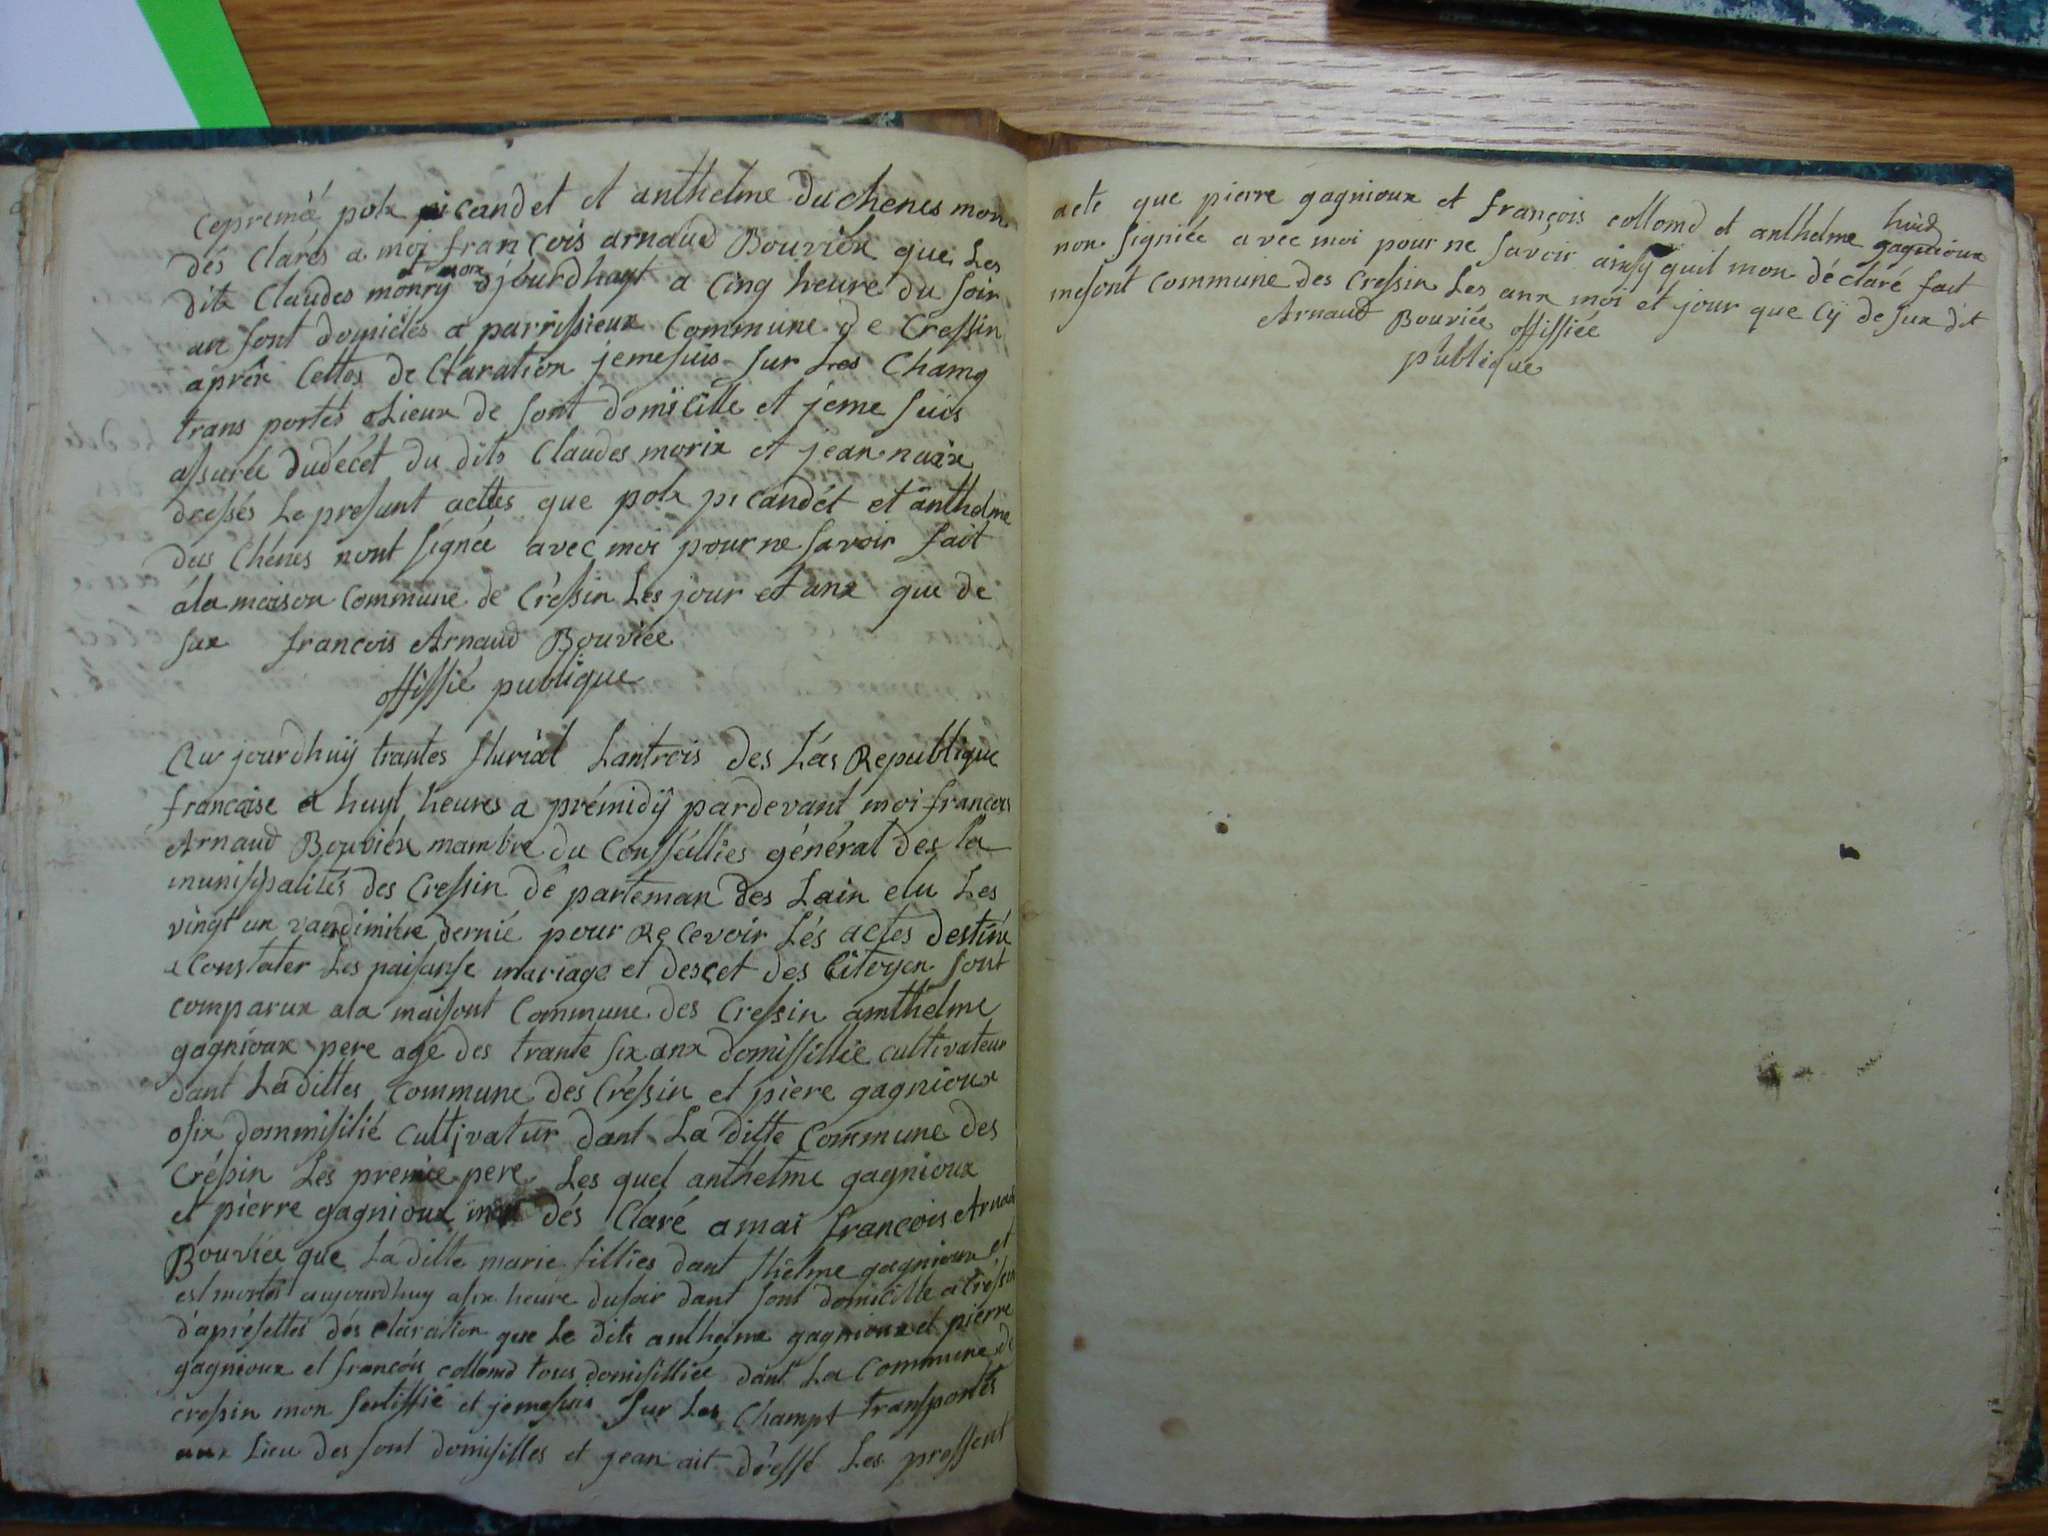 cepremié pola picandet et anthelme duchenes mon
dés Clarés a moi francois arnaud Bouviex que Les
dits Claudes et morix djourdhuyt a Cinq heure du soir
an sont domiciles a parrissieux Commune de Cressin
aprèx Cettes de Claration jemesuis sur Les Champ
trans portés oLieux de sont domicille et jeme suis
assurée dudécét du dits Claudes morix et jean naix
dressés Le presant acttes que pola picandét et anthelme
des Chénes nont signée avec moi pour ne savoir fait
ála meison Commune de Cressin Les jour et anx que de
sux francois Arnaud Bouviée
offissié publique
Au jourdhuÿ trantes flurial Lantrois des Lás Republique
francaise a huyt heures a prémidÿ pardevant moi francois
Arnaud Bouviéx mambre du Conssellies général des la
munisipalités des Cressin dé parteman des Lain elu Les
vingt un vandimiere dernié pour Recevoir Lés actes destiné
a Constater Les naisanse mariage et descet des Citoyen sont
comparux ala maisont Commune des Cressin amthelme
gagnioux pere age des trante six anx domissillié cultivateur
dant Ladittes Commune des Créssin et pière gagnioux
osix dommisilié cultivatur dant La ditte Commune des
Créssin Les premiée pere Les quel anthelme gagnioux
et pierre gagnioux mon dés Claré amai francois Arnaud
Bouviée que Laditte marie fillies dant thelme gagnioux et
est mortes aujourdhuy asix heure dusoir dant sont domicille a Créssin
d'aprésettes dés claration que Le dits anthelme gagnioux et pierre
gagnioux et francois collomd tous domisilliée dant La Commune de
cressin mon sertissié et jemesuis sur Les Champt transportés
aux Lieu des sont domisilles et jean ait dressé Les pressent
acte que pierre gagnioux et françois collomd et anthelme gagnioux
non signiée avec moi pour ne savoir ainsÿ quil mon déclaré fait
mesont Commune des Cressin Les anx moi et jour que Cÿ de sux dit
Arnaud Bouviée offissiée
publique